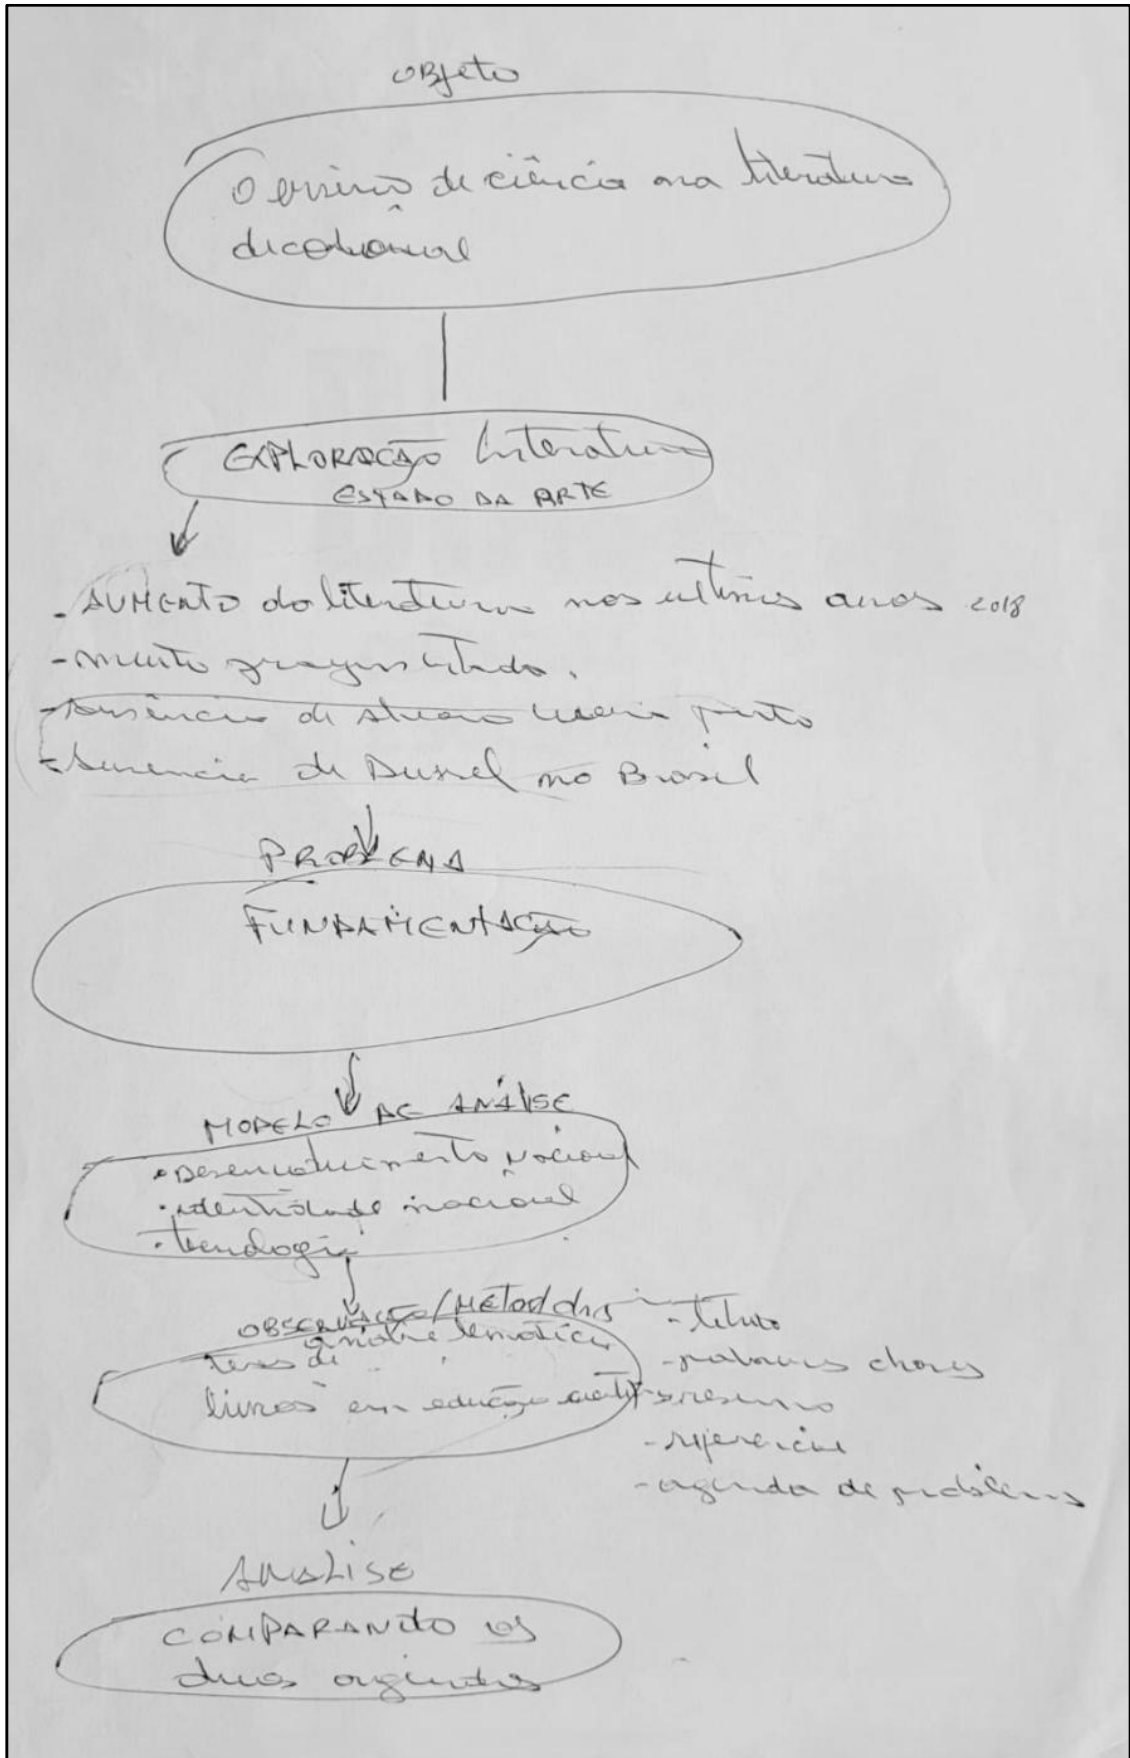 Objeto
O ensino de ciência na literatura
decolonial
EXPLORAÇÃO Literatura
ESTADO DA ARTE
- AUMENTO da literatura nos ultimos anos 2018
- muito fragmentado.
- Ausência de Alvaro Vieira Pinto
- Ausencia de Dussel no Brasil
PROBLEMA
FUNDAMENTAÇÃO
MODELO DE ANÁLISE
• Desenvolvimento Nacional
• identidade nacional
• tecnologia
OBSERVAÇÃO/METODOS
análise temática
teses de
livros em educação
- titulo
- palavras chaves
- resumo
- referencias
- agenda de problemas
ANALISE
COMPARANDO as
duas agendas